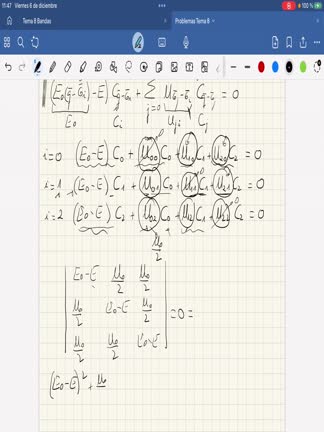 11:47 Viernes 6 de diciembre
100 %
Tema 8 Bandas
Problemas Tema 8
(E₀(q̄-Ḡᵢ)-E) C_q̄-Ḡᵢ + Σ j=0 U_Ḡⱼ-Ḡᵢ C_q̄-Ḡⱼ = 0
E₀ Cᵢ Uⱼᵢ Cⱼ
i=0 (E₀-E) C₀ + U₀₀ C₀ + U₁₀ C₁ + U₂₀ C₂ = 0
i=1 (E₀-E) C₁ + U₀₁ C₀ + U₁₁ C₁ + U₂₁ C₂ = 0
i=2 (E₀-E) C₂ + U₀₂ C₀ + U₁₂ C₁ + U₂₂ C₂ = 0
U₀/2
| E₀-E U₀/2 U₀/2 |
| U₀/2 E₀-E U₀/2 | = 0 =
| U₀/2 U₀/2 E₀-E |
(E₀-E)² + U₀